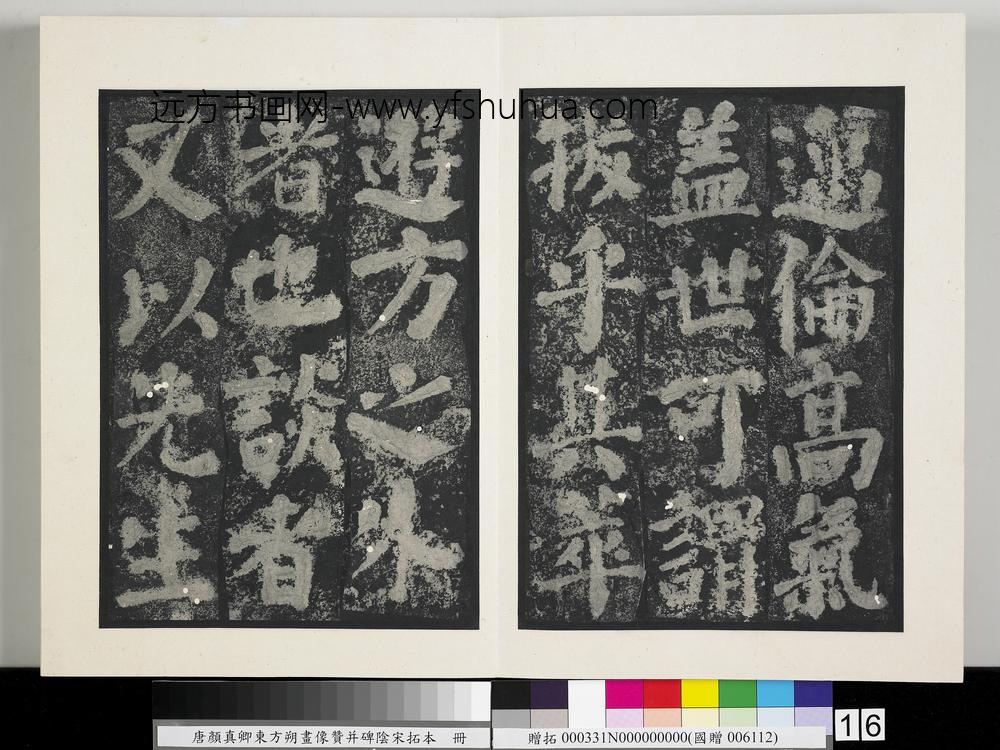 远方书画网-www.yfshuhua.com
邈倫高氣
盖世可謂
拔乎其萃
遊方之外
者也談者
又以先生
唐顏真卿東方朔畫像贊并碑陰宋拓本 冊
贈拓 000331N000000000(國贈 006112)
16